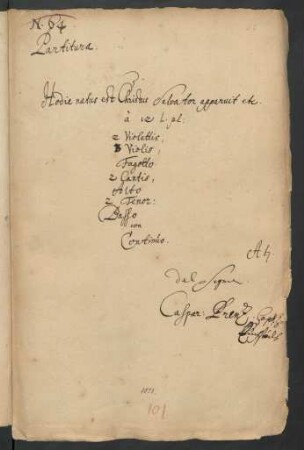 N. 64
Partitura.
Hodie natus est Christus Salvator apparuit etc.
à 12 l. pl:
2 Violettis,
3 Violis,
Fagotto
2 Cantis,
Alto
2 Tenor:
Basso
con
Continuo.
Ah
dal Signore
Caspar: Prenz
101